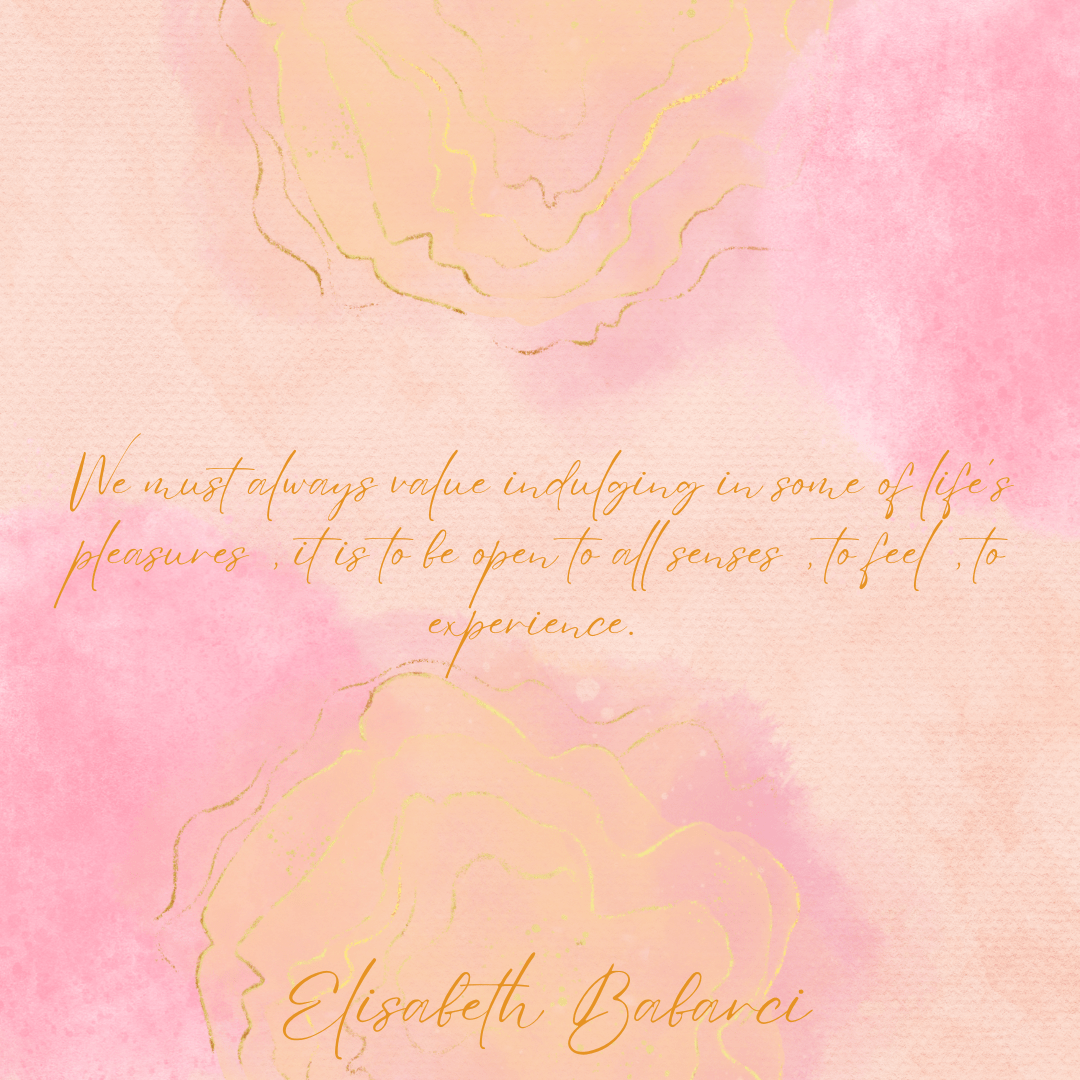 We must always value indulging in some of life's
pleasures , it is to be open to all senses , to feel , to
experience.
Elisabeth Babarci